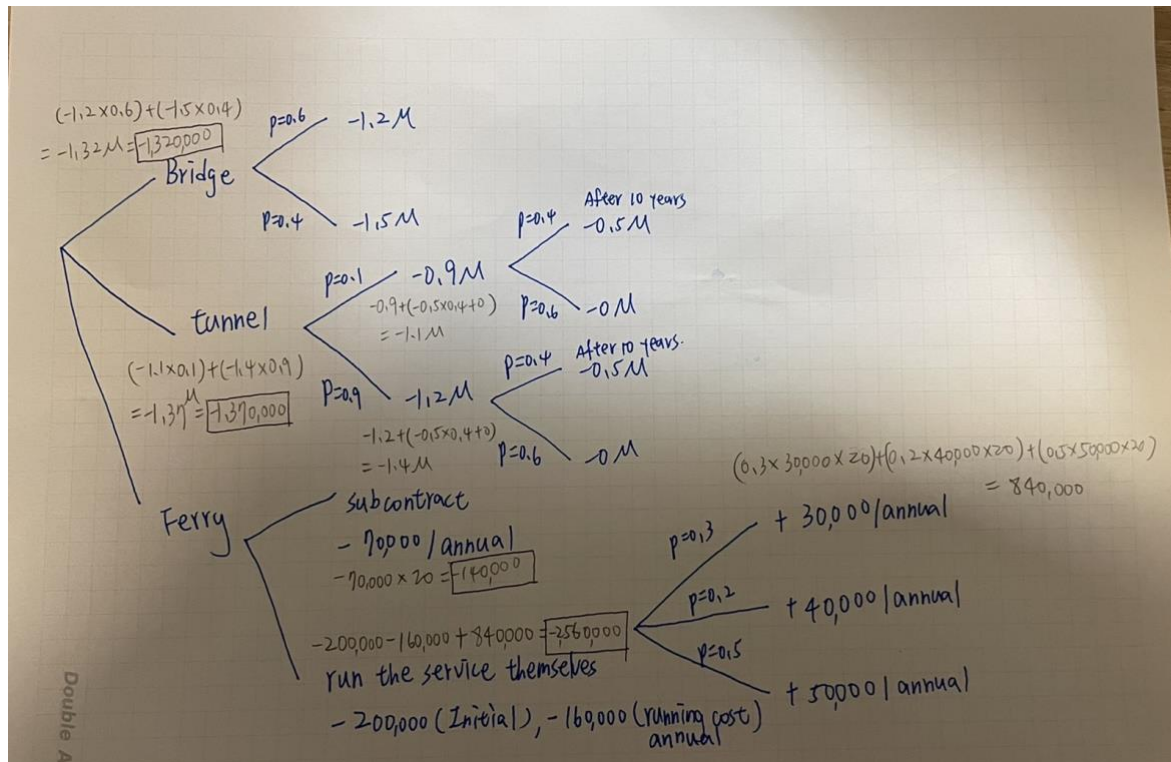 (-1.2×0.6)+(-1.5×0.4)
= -1.32M = -1,320,000
Bridge
p=0.6
-1.2M
p=0.4
-1.5M
tunnel
(-1.1×0.1)+(-1.4×0.9)
= -1.37M = -1,370,000
p=0.1
-0.9M
-0.9+(-0.5×0.4+0)
= -1.1M
p=0.4
After 10 years
-0.5M
p=0.6
-0M
p=0.9
-1.2M
-1.2+(-0.5×0.4+0)
= -1.4M
p=0.4
After 10 years.
-0.5M
p=0.6
-0M
Ferry
subcontract
- 70,000/annual
-70,000 × 20 = -140,000
-200,000-160,000+840,000 = -2,560,000
run the service themselves
-200,000 (Initial), -160,000 (running cost)
annual
(0.3×30,000×20)+(0.2×40,000×20)+(0.5×50,000×20)
= 840,000
p=0.3
+ 30,000/annual
p=0.2
+ 40,000/annual
p=0.5
+ 50,000/annual
Double A